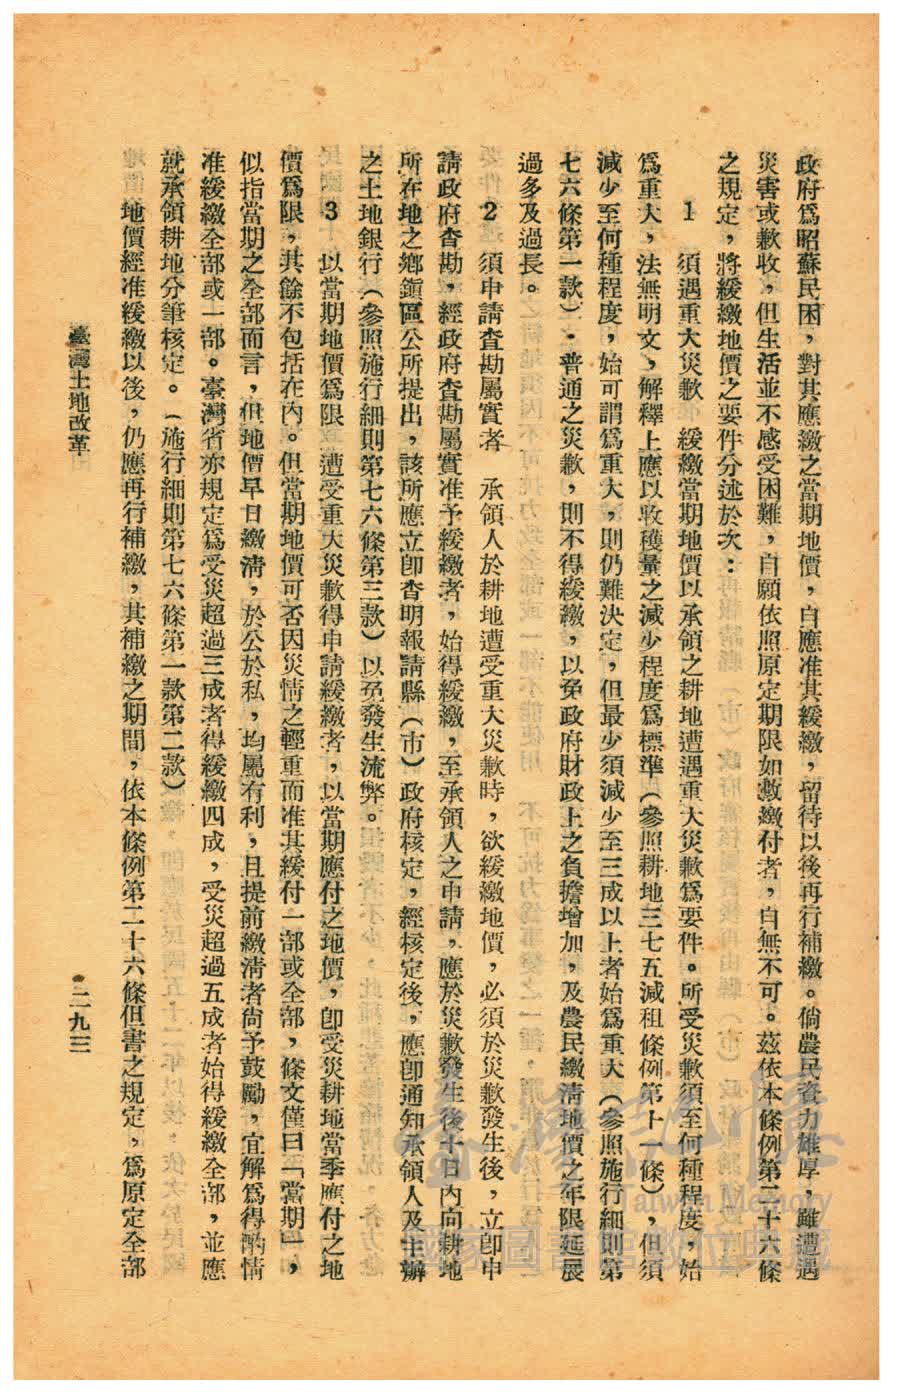 政府爲昭蘇民困，對其應繳之當期地價，自應准其緩繳，留待以後再行補繳。倘農民資力雄厚，雖遭遇
災害或歉收，但生活並不感受困難，自願依照原定期限如數繳付者，自無不可。茲依本條例第二十六條
之規定，將緩繳地價之要件分述於次：
1　須遇重大災歉　緩繳當期地價以承領之耕地遭遇重大災歉爲要件。所受災歉須至何種程度，始
爲重大，法無明文，解釋上應以收穫量之減少程度爲標準（參照耕地三七五減租條例第十一條），但須
減少至何種程度，始可謂爲重大，則仍難決定，但最少須減少至三成以上者始爲重大（參照施行細則第
七六條第一款）。普通之災歉，則不得緩繳，以免政府財政上之負擔增加，及農民繳清地價之年限延展
過多及過長。
2　須申請查勘屬實者　承領人於耕地遭受重大災歉時，欲緩繳地價，必須於災歉發生後，立卽申
請政府查勘，經政府查勘屬實准予緩繳者，始得緩繳，至承領人之申請，應於災歉發生後十日內向耕地
所在地之鄉鎮區公所提出，該所應立卽查明報請縣（市）政府核定，經核定後，應卽通知承領人及主辦
之土地銀行（參照施行細則第七六條第三款）以免發生流弊。
3　以當期地價爲限　遭受重大災歉得申請緩繳者，以當期應付之地價，卽受災耕地當季應付之地
價爲限，其餘不包括在內。但當期地價可否因災情之輕重而准其緩付一部或全部，條文僅曰「當期」，
似指當期之全部而言，但地價早日繳清，於公於私，均屬有利，且提前繳清者尙予鼓勵，宜解爲得酌情
准緩繳全部或一部。臺灣省亦規定爲受災超過三成者得緩繳四成，受災超過五成者始得緩繳全部，並應
就承領耕地分筆核定。（施行細則第七六條第一款第二款）
地價經准緩繳以後，仍應再行補繳，其補繳之期間，依本條例第二十六條但書之規定，爲原定全部
臺灣土地改革
二九三
臺灣記憶
Taiwan Memory
國家圖書館數位典藏